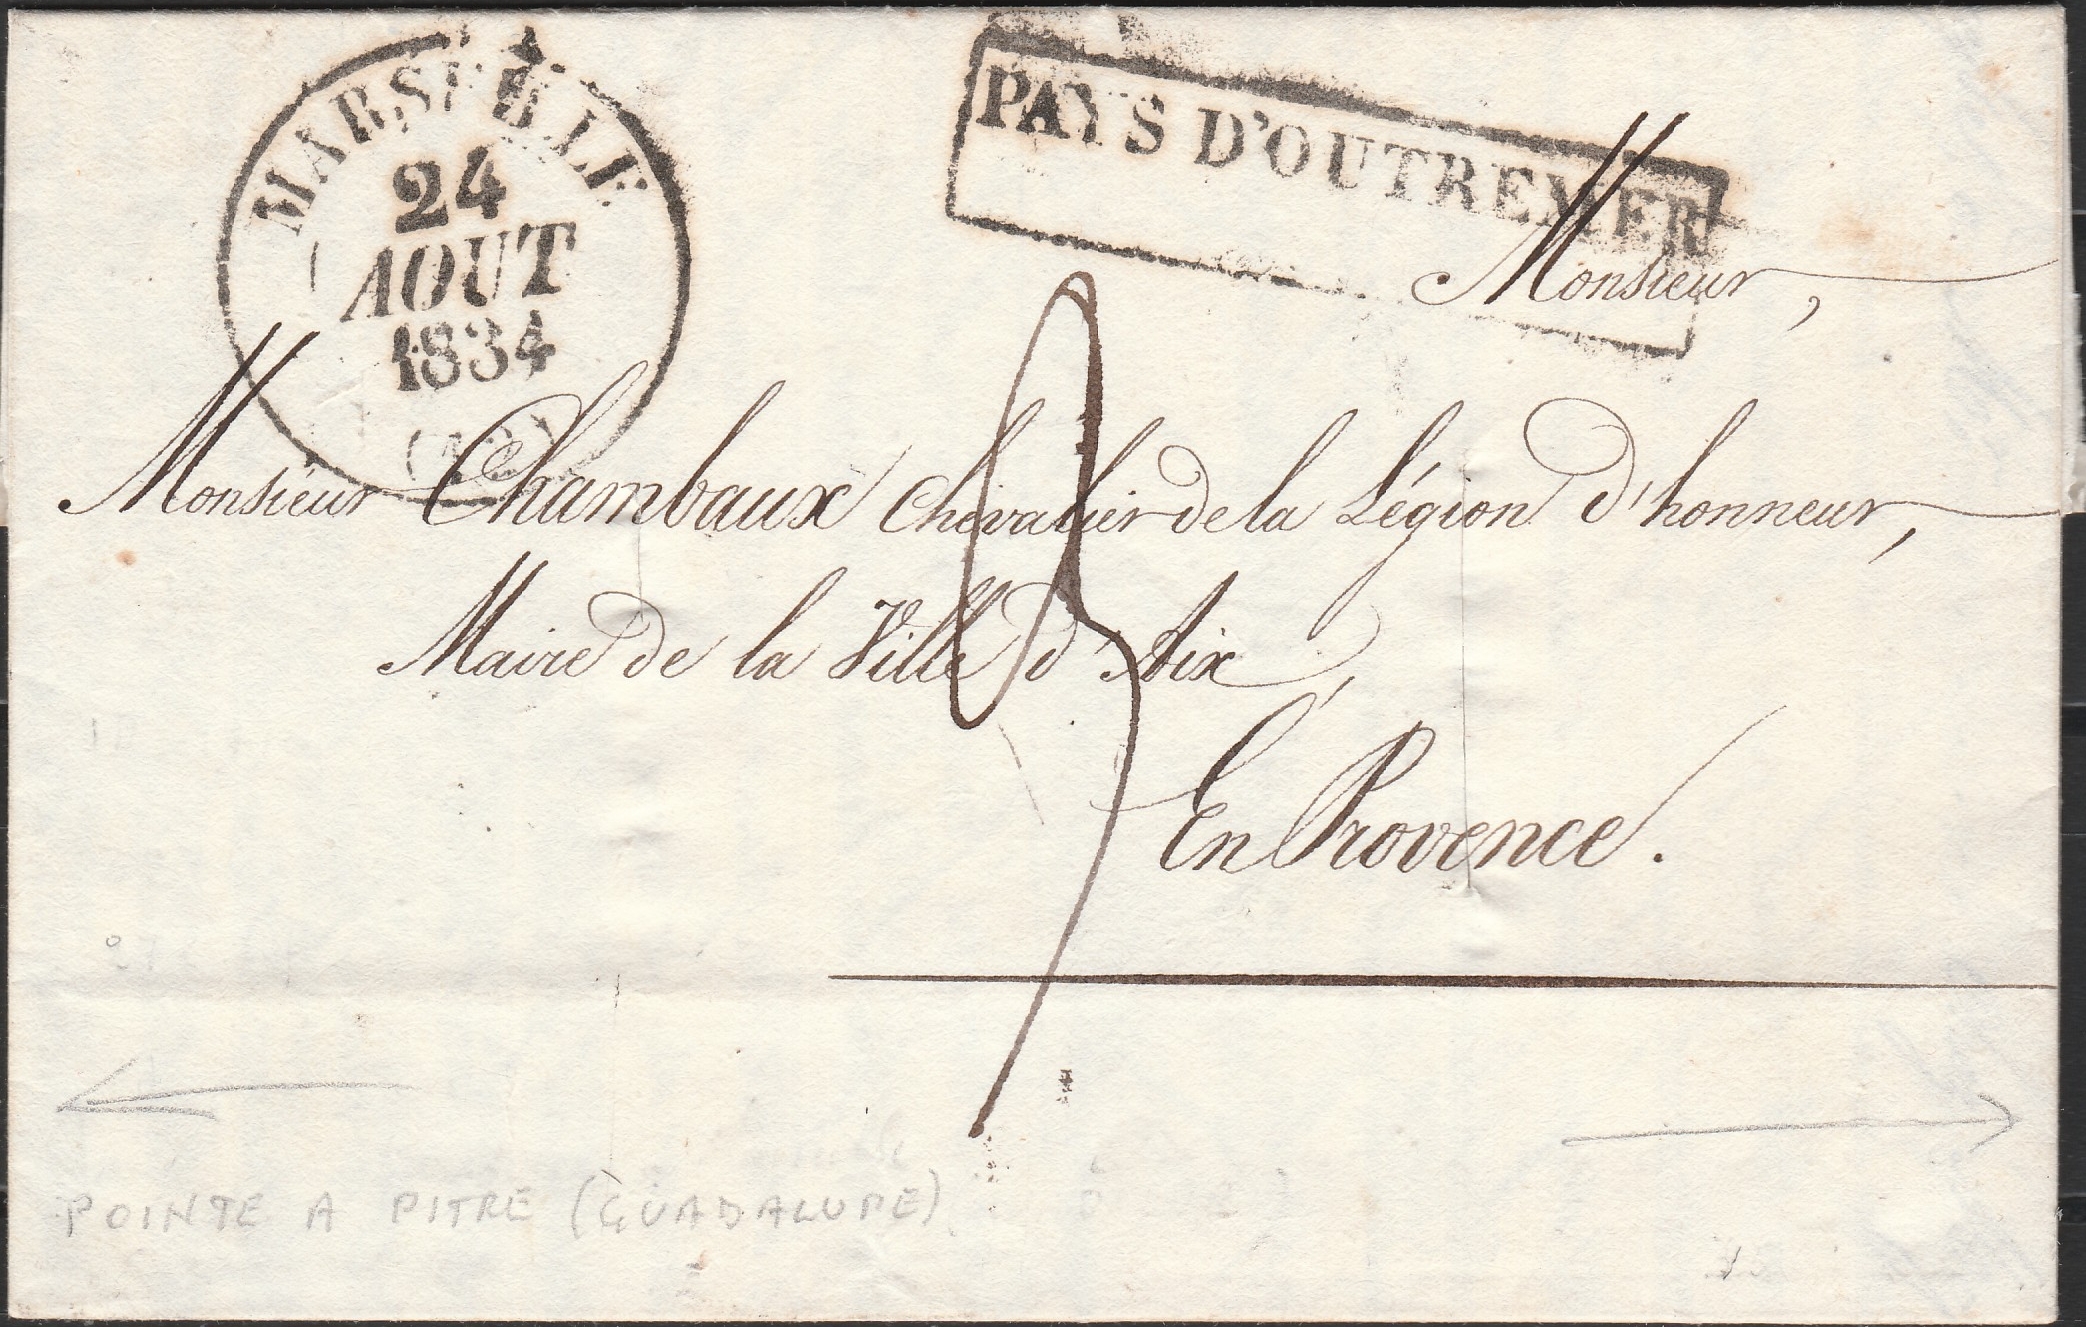 MARSEILLE
24
AOUT
1834
(12)
PAYS D'OUTREMER
Monsieur,
Monsieur Chambaux Chevalier de la Légion d'honneur,
Maire de la Ville d'Aix,
En Provence.
3
POINTE A PITRE (GUADALUPE)